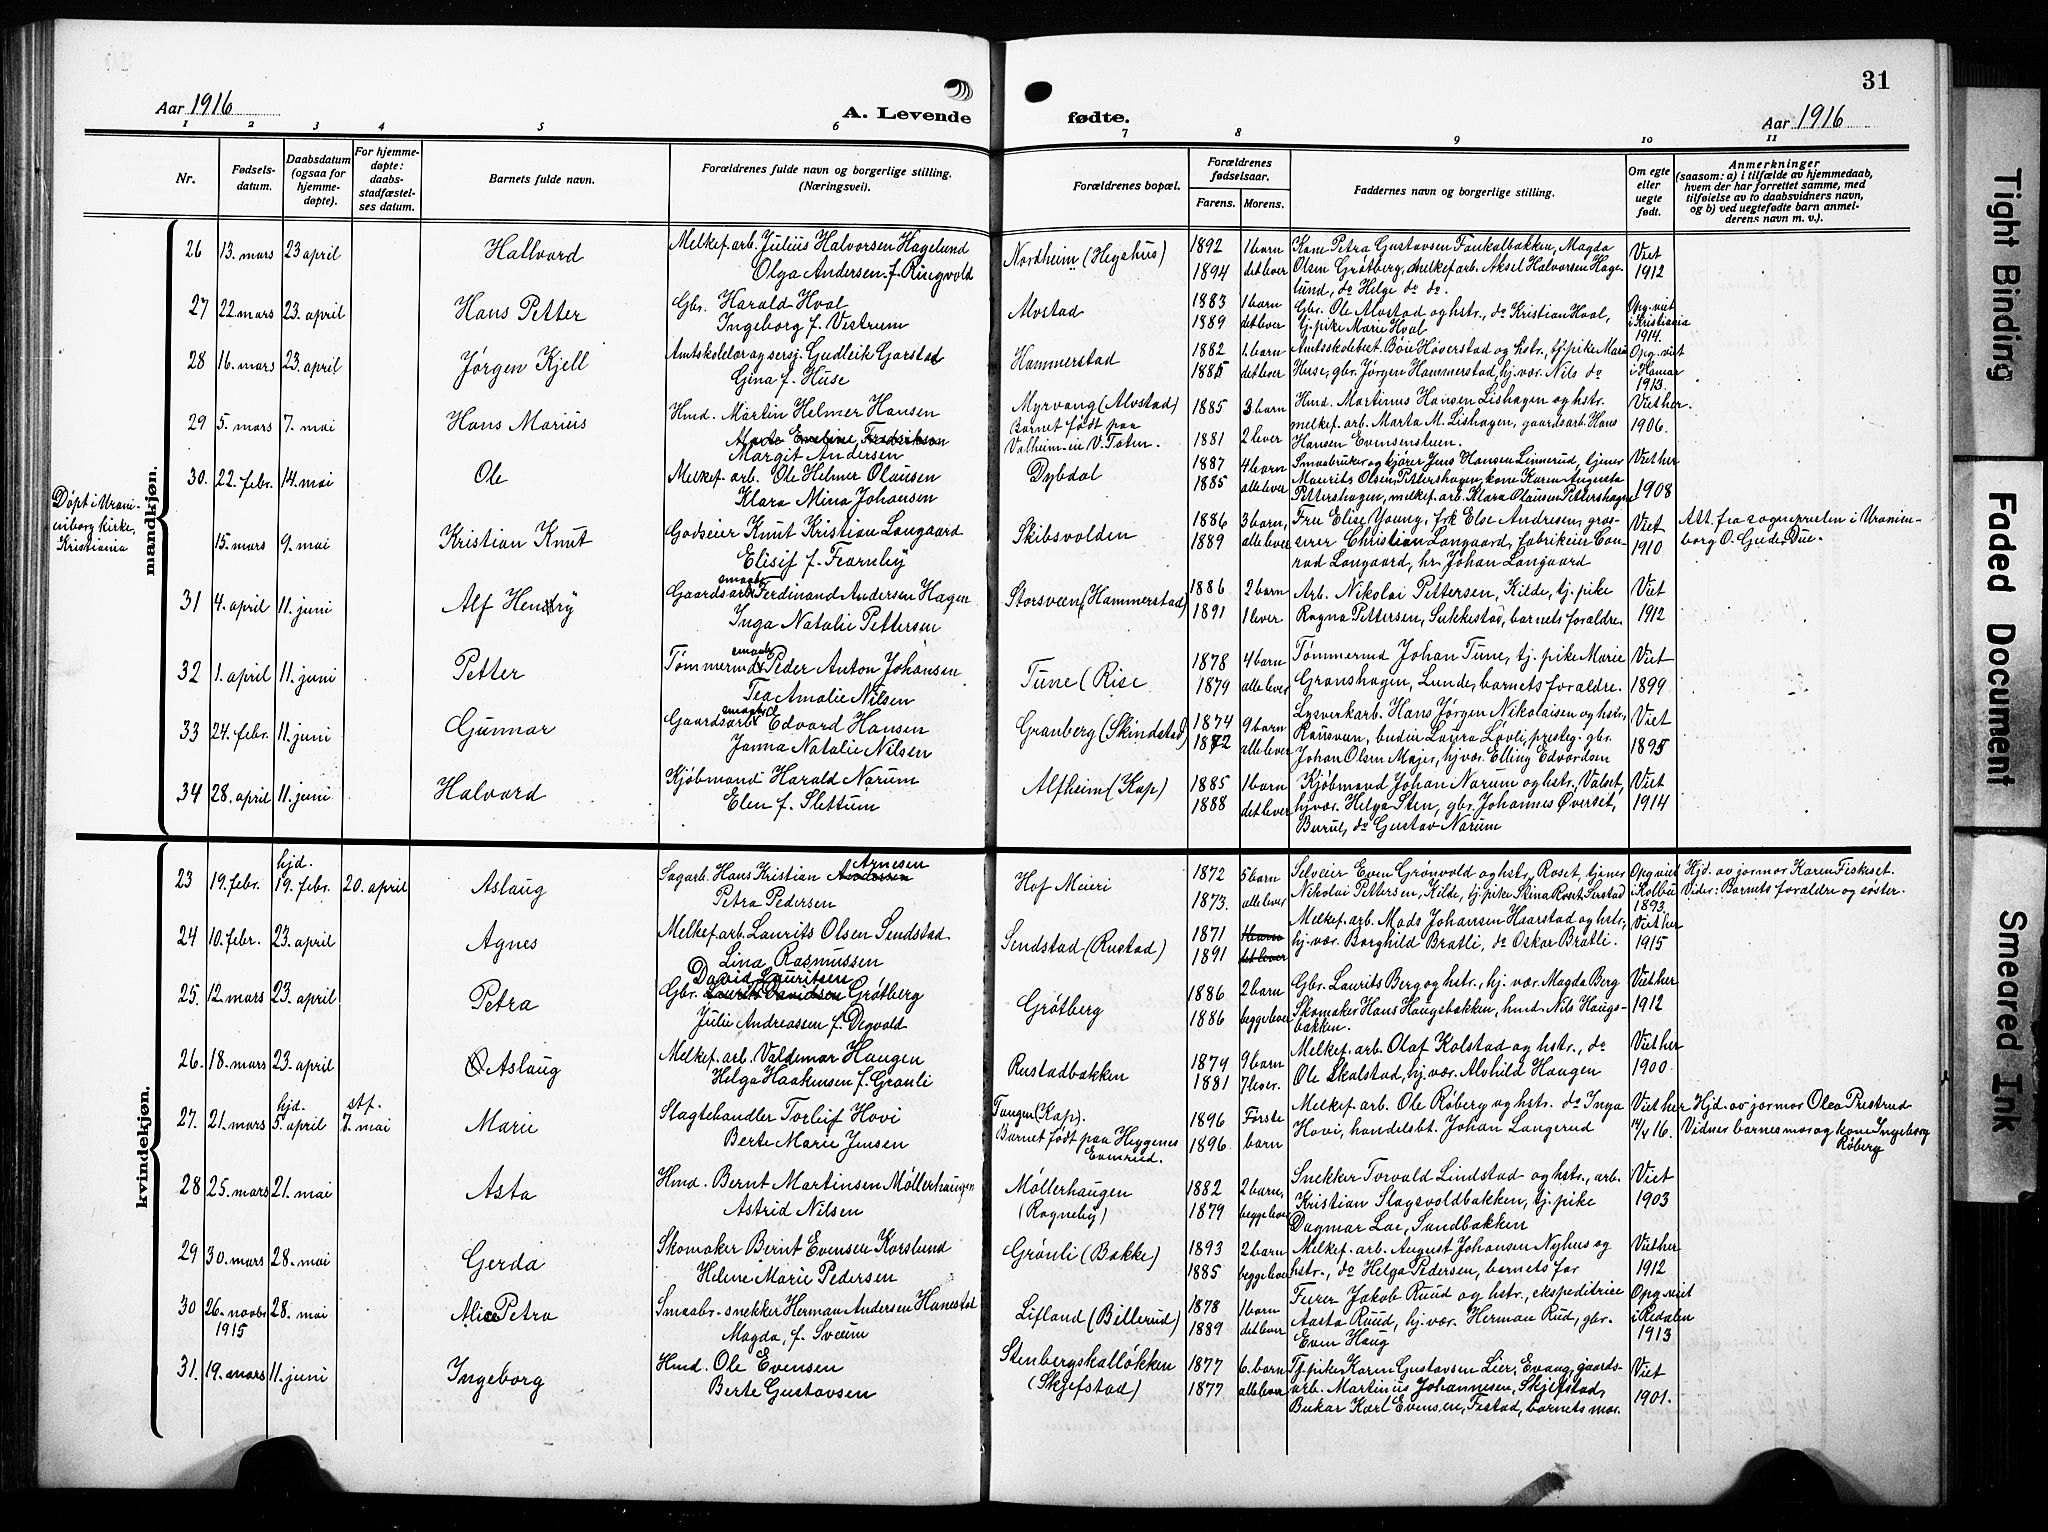 31
Aar 1916
A. Levende
fødte.
Aar 1916
1 2 3 4 5 6 7 8 9 10 11
Nr.
Fødsels-
datum.
Daabsdatum
(ogsaa for
hjemme-
døpte).
For hjemme-
døpte:
daabs-
stadfæstel-
ses datum.
Barnets fulde navn.
Forældrenes fulde navn og borgerlige stilling.
(Næringsvei).
Forældrenes bopæl.
Forældrenes
fødselsaar.
Farens. Morens.
Faddernes navn og borgerlige stilling.
Om egte
eller
uegte
født.
Anmerkninger
(saasom: a) i tilfælde av hjemmedaab,
hvem der har forrettet samme, med
tilføielse av to daabsvidners navn,
og b) ved uegtefødte barn anmel-
derens navn m. v.).
mandkjøn.
26 13. mars 23 april Hallvord Melkef. arb. Julius Halvorsen Hagelund Nordheim (Hegshus) 1892 1 barn Kone Petra Gustavsen Faukalbakken, Magda Viet
Olga Andersen f. Ringvold 1894 det lever Olsen Grøtberg, melkef. arb. Aksel Halvorsen Hage- 1912
lund, do Helge do do.
27 22 mars 23. april Hans Petter Gbr. Harald Hval Alvstad 1883 1 barn Gbr. Ole Alvstad og hstr., do Kristian Hval, Opg. viet
Ingeborg f. Vestrum 1889 det lever tj. pike Marie Hval i Kristiania
1914.
28 16. mars 23. april Jørgen Kjell Amtskolelærer og sersj. Gudleik Garstad Hammerstad 1882 1. barn Amtsskolebest. Bøie Høverstad og hstr., tj. pike Mari Opg. viet
Gina f. Huse 1885 det lever Huse, gbr. Jørgen Hammerstad, hj. vær. Nils do i Hamar
1913.
29 5. mars 7. mai Hans Marius Hmd. Martin Helmer Hansen Myrvang (Alvstad) 1885 3 barn Hmd. Martinus Hansen Lishagen og hstr. Viet her.
Marte Eveline Fredriksen Barnet født paa melkef. arb. Marta M. Lishagen, gaardsarb. Hans 1906.
Margit Andersen Valheim-ie V. Toten. 1881 2 lever Hansen Evensensteen.
30. 22. febr. 14. mai Ole Melkef. arb. Ole Helmer Olausen Dybdal 1887 4 barn Smaabruker og kjører Jens Hansen Linnerud, tjener Viet her
Klara Mina Johansen 1885 alle lever Maurits Olsen, Pettershagen, kone Karen Augusta
Pettershagen, melkef. arb. Klara Olausen Pettershagen 1908
Døpt i Urani-
enborg kirke,
Kristiania
15. mars 9. mai Kristian Knut Godseier Knut Kristian Langaard Skibsvolden 1886 3 barn, Fru Elise Young, frk Else Andresen, gros- Viet Att. fra sogneprelen i Uranien-
Elisif f. Fearnley 1889 alle lever serer Christian Langaard, fabrikeier Con- 1910 borg O. Gude Due.-
rad Langaard, hr. Johan Langaard
31 4. april 11. juni Alf Henry smaabr. Gaardsarb. Ferdinand Andersen Hagen Storsveen (Hammerstad) 1886 2 barn Arb. Nikolai Pettersen, Kilde, tj. pike Viet
Inga Natalie Pettersen 1891 1 lever Ragna Pettersen, Sukkestad, barnets forældre. 1912
32 1. april 11. juni Petter smaabr. Tømmermd. Peder Anton Johansen Tune (Rise 1878 4 barn Tømmermd Johan Tune, tj. pike Marie Viet
Tea Amalie Nilsen 1879 alle lever Granshagen, Lunde, barnets forældre. 1899
33 24. febr. 11. juni Gunnar Gaardsarb. Edvard Hansen Granberg (Skindstad) 1874 9 barn Lysverkarb. Hans Jørgen Nikolaisen og hstr., Viet
Janna Natalie Nilsen 1872 alle lever Rausveen, budeie Laura Løvli, presteg. gbr. 1895
Johan Olsen Majer, hj. vær. Elling Edvardsen
34 28. april 11. juni Halvard Kjøbmand Harald Narum Alfheim (Kap) 1885 1 barn Kjøbmand Johan Narum og hstr., Valset, Viet
Elen f. Slettum 1888 det lever hj. vær. Helga Sten, gbr. Johannes Øverset, 1914
Burul, do Gustav Narum
kvindekjøn.
23 19. febr. hjd. 19. febr. 20. april Aslaug Sagarb. Hans Kristian Andersen Arnesen Hof Meieri 1872 5 barn Selveier Even Grønvold og hstr., Roset, tjener Opg. viet Hjd. av jormor Karen Fiskeset.
Petra Pedersen 1873. alle lever Nikolai Pettersen, Kilde, tj. pike Skina Roset Serstad i Kolbu Vider: Barnets forældre og søster.
1893.
24 10. febr. 23. april Agnes Melkef. arb. Laurits Olsen Sendstad Sendstad (Rustad) 1871 Melkef. arb. Mads Johansen Haarstad og hstr., Viet her
Lina Rasmussen 1891 det lever hj. vær. Borghild Bratli, do Oskar Bratli. 1915
25. 12. mars 23. april Petra Gbr. Laurits Davidsen David Lauritsen Grøtberg Grøtberg 1886 2 barn Gbr. Laurits Berg og hstr., hj. vær. Magda Berg Viet her
Julie Andreassen f. Degvold 1886 begge lever Skomaker Hans Haugsbakken, hmd. Nils Haugs- 1912
bakken.
26. 18. mars 23. april Aslaug Melkef. arb. Valdemar Haugen Rustadbakken 1874 9 barn Melkef. arb. Olaf Kolstad og hstr., do Viet her
Helga Haakensen f. Granli 1881 7 lever. Ole Skalstad, hj. vær. Alvhild Haugen 1900
27. 21. mars hjd. 5. april stf. 7. mai Marie Slagtehandler Torleif Hovi Tangen (Kap). 1896 Første Melkef. arb. Ole Røberg og hstr. do Inga Viet her Hjd. av jormor Olea Prestrud
Berte Marie Jensen Barnet født paa Heggenes 1896 barn Hovi, handelsbt. Johan Langerud 14/4 16. Vidner barnes mor og kone Ingeborg
Evenrud. Røberg
28 25. mars 21. mai Asta Hmd. Bernt Martinsen Møllerhaugen Møllerhaugen 1882 2 barn, Snekker Torvald Lindstad og hstr., arb. Viet
Astrid Nilsen (Rogneby) 1879 begge lever Kristian Slagsvoldbakken, tj. pike 1903
Dagmar Lae, Sandbakken
29 30. mars 28. mai Gerda Skomaker Bernt Evensen Korslund Grønli (Bakke) 1893 2 barn Melkef. arb. August Johansen Nyhus og Viet her
Helene Marie Pedersen 1885 begge lever hstr., do Helga Pedersen, barnets far 1912
30 26. novbr 28. mai Alice Petra Smaabr.-snekker Herman Andersen Hanestad Lifland (Billerud) 1878 1 barn Furer Jakob Ruud og hstr., ekspeditrice Opg. viet
1915 Magda f. Sveum 1889 det lever Aasta Ruud, hj. vær. Herman Rud, gbr. i Redalen
Even Haug 1913
31. 19. mars 11. juni Ingeborg Hmd. Ole Evensen Stenbergskalløkken 1877 6. barn Tj. pike Karen Gustavsen Lier, Evang, gaards- Viet
Berte Gustavsen (Skjefstad) 1877 alle lever arb. Martinius Johannesen, Skjelstad, 1901.
Bukar Karl Evensen, Fistad, barnets mor.
Tight Binding
Faded Document
Smeared Ink